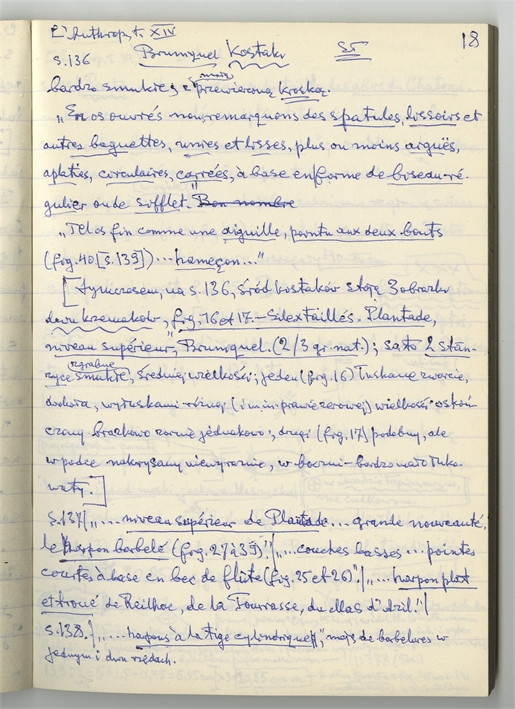 L'Anthrop. t. XIV 18
s. 136 Bruniquel Kostaki SS
bardzo smukłe; z przewierconą kroską.
„En os ouvrés nous remarquons des spatules, lissoirs et
autres baguettes, unies et lisses, plus ou moins aiguës,
aplaties, circulaires, carrées, à base en forme de biseau ré-
gulier ou de sifflet. Bon nombre
„Tel os fin comme une aiguille, pointu aux deux bouts
(fig. 40 [s. 139]) ... hameçon..."
[Tymczasem, na s. 136, śród kostaków stoją 2 obrazki
dwu krzemaków, fig. 16 et 17. – Silex taillés. Plantade,
niveau supérieur, Bruniquel. (2/3 gr. nat.); są to 2
zgrabne
smukłe, średniej wielkości; jeden (fig. 16) łuskany zwarcie,
dookoła, wyłuskami różnej (i m.in. prawie zerowej) wielkości
drugi (fig. 17) podobny, ale
w niewyraźnie, w bardzo mało łuska-
waty.]
s. 137 „... niveau supérieur de Plantade... grande nouveauté:
le harpon barbelé (fig. 27 à 39)" „... couches basses... pointes
courtes à base en bec de flûte (fig. 25 et 26)". „... harpon plat
et troué de Reilhac, de la Tourasse, du Mas d'Azil!"
s. 138. „... harpons à la tige cylindrique", mais de barbelures w
jednym i dwu rzędach.